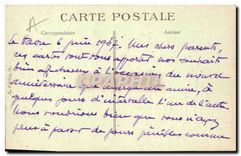 CARTE POSTALE
Correspondance Adresse
Le Havre 6 juin 1937. Mes chers parents,
ces cartes vont vous apporter nos souhaits
bien affectueux à l'occasion du nouvel
anniversaire que chaque année, à
quelques jours d'intervalle l'un de l'autre.
Nous voudrions bien que vous n'ayez
pas à passer de jours pénibles comme